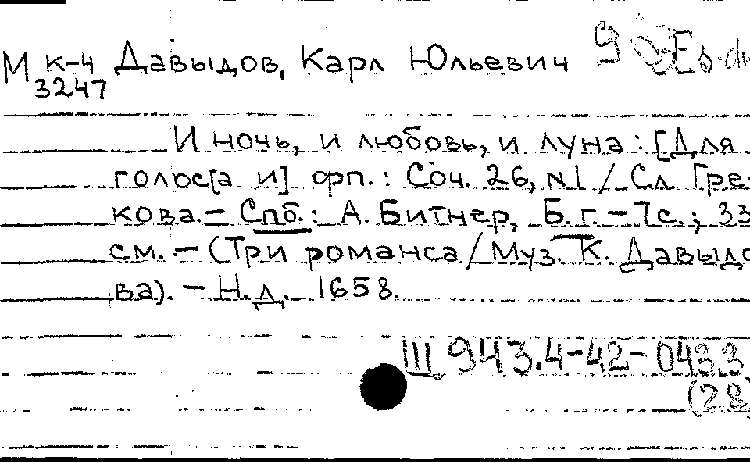 М к-4 Давыдов, Карл Юльевич 9
3247
И ночь, и любовь, и луна: [Для
голос[а и] фп.: Соч. 26, №1 / Сл. Гре-
кова. – Спб.: А. Битнер, Б.г. – 7с.; 33
см. – (Три романса / Муз. К. Давыдо
ва). – Н.д. 1658.
Ш 943.4-42-043.3
(28